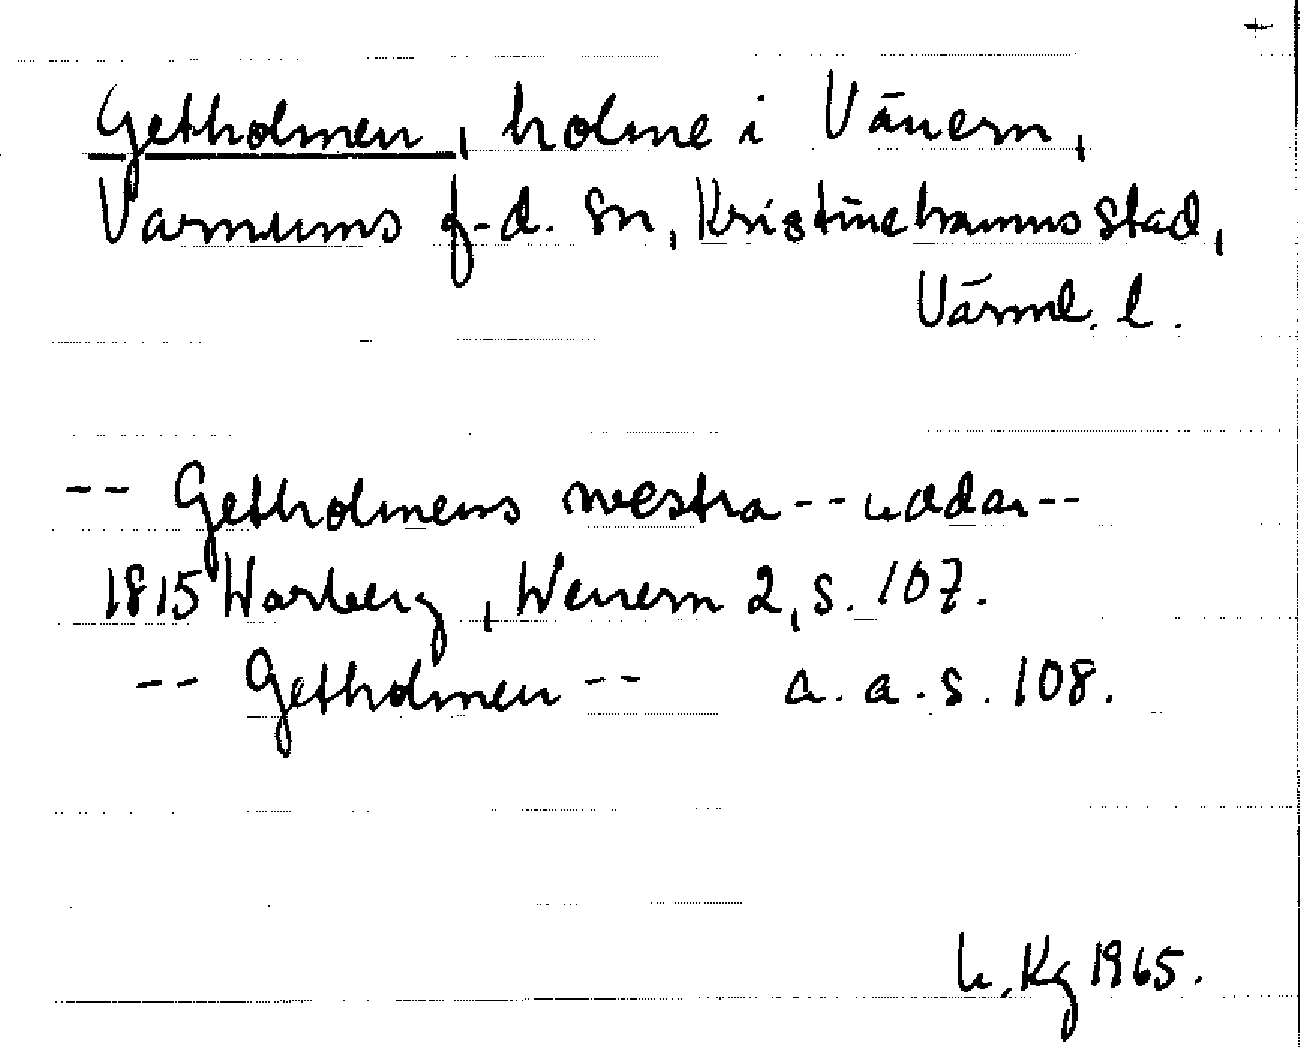 Getholmen, holme i Vänern,
Varnums f.d. sn, Kristinehamns stad,
Värml. l.
-- Getholmens westra -- uddar --
1815 Warberg, Wenern 2, s. 107.
-- Getholmen -- a. a. s. 108.
Kg 1965.